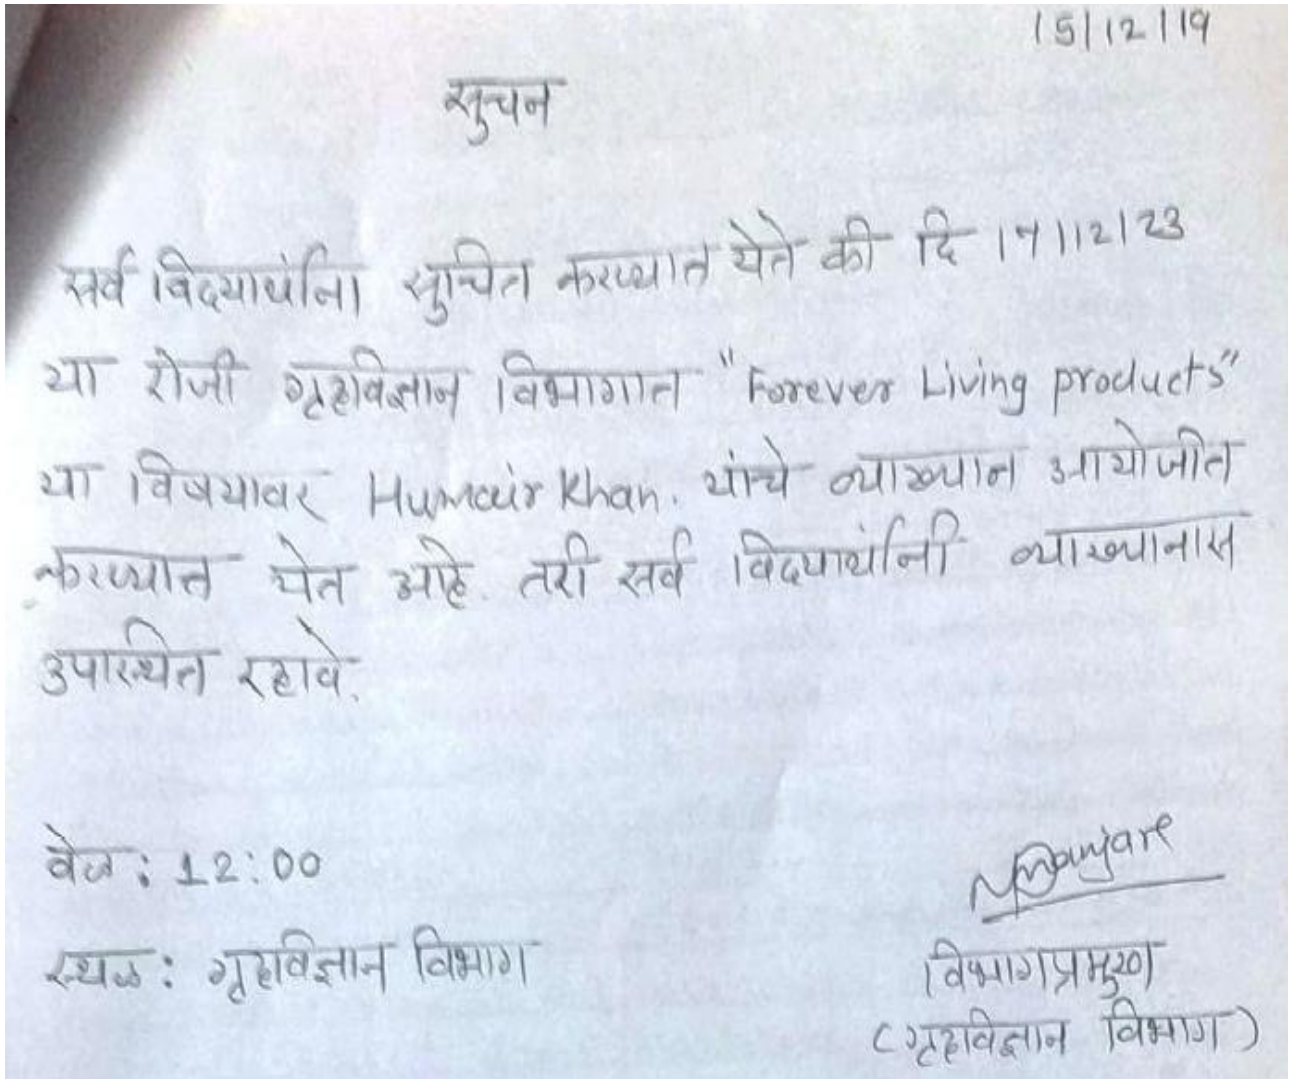 15/12/19
सुचन
सर्व विद्यार्थांना सुचित करण्यात येते की दि 17/12/23
या रोजी गृहविज्ञान विभागात "Forever Living products"
या विषयावर Humair Khan. यांचे व्याख्यान आयोजीत
करण्यात येत आहे. तरी सर्व विद्यार्थांनी व्याख्यानास
उपास्थित रहावे.
वेळ : 12:00
Nmanjare
स्थळ : गृहविज्ञान विभाग
विभागप्रमुख
(गृहविज्ञान विभाग)